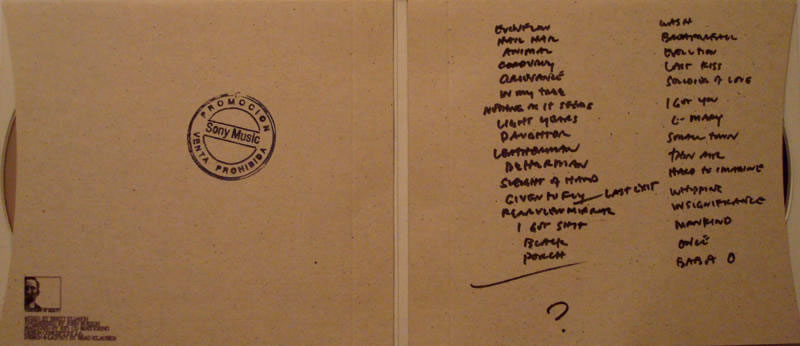 PROMOCION
Sony Music
VENTA PROHIBIDA
MIXED BY BRETT ELIASON
DESIGN & LAYOUT BY BRAD KLAUSEN
EVENFLOW
HAIL HAIL
ANIMAL
CORDUROY
GRIEVANCE
IN MY TREE
NOTHING AS IT SEEMS
LIGHT YEARS
DAUGHTER
LEATHERMAN
BETTERMAN
SLEIGHT OF HAND
GIVEN TO FLY — LAST EXIT
REARVIEWMIRROR
I GOT SHIT
BLACK
PORCH
?
WASH
BREAKERFALL
EVOLUTION
LAST KISS
SOLDIER OF LOVE
I GOT YOU
C-MARY
SMALL TOWN
THIN AIR
HARD TO IMAGINE
WHIPPING
INSIGNIFICANCE
MANKIND
ONCE
BABA O